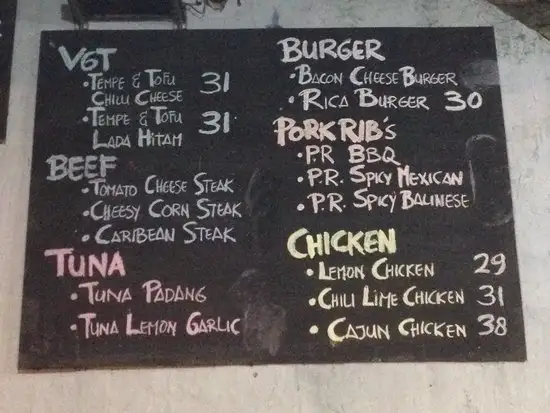 VGT
•Tempe & Tofu 31
Chili Cheese
•Tempe & Tofu 31
Lada Hitam
BEEF
•Tomato Cheese Steak
•Cheesy Corn Steak
•Caribean Steak
TUNA
•Tuna Padang
•Tuna Lemon Garlic
BURGER
•Bacon Cheese Burger
•Rica Burger 30
PORK RIB's
•P.R BBQ
•P.R. Spicy Mexican
•P.R. Spicy Balinese
CHICKEN
•Lemon Chicken 29
•Chili Lime Chicken 31
•Cajun Chicken 38